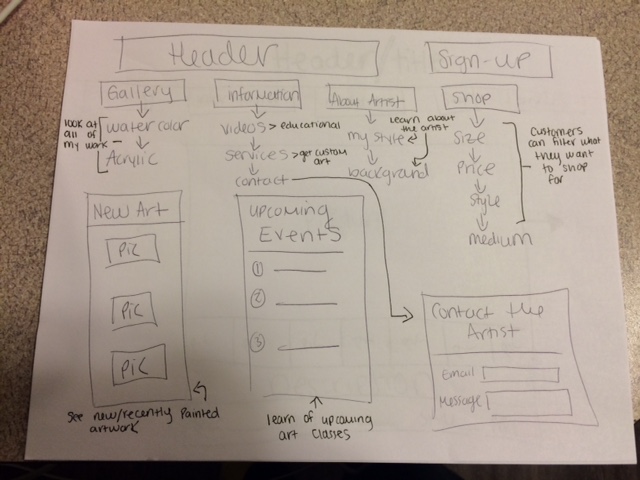 Header
Sign-up
Gallery
information
About Artist
shop
look at
all of
my work
water color
Acrylic
videos > educational
services > get custom
art
contact
Learn about
the artist
my style
background
Size
Price
style
medium
Customers
can filter what
they want
to shop
for
New Art
Pic
Pic
Pic
See new/recently Painted
artwork
upcoming
Events
1
2
3
learn of upcoming
art classes
Contact the
Artist
Email
Message